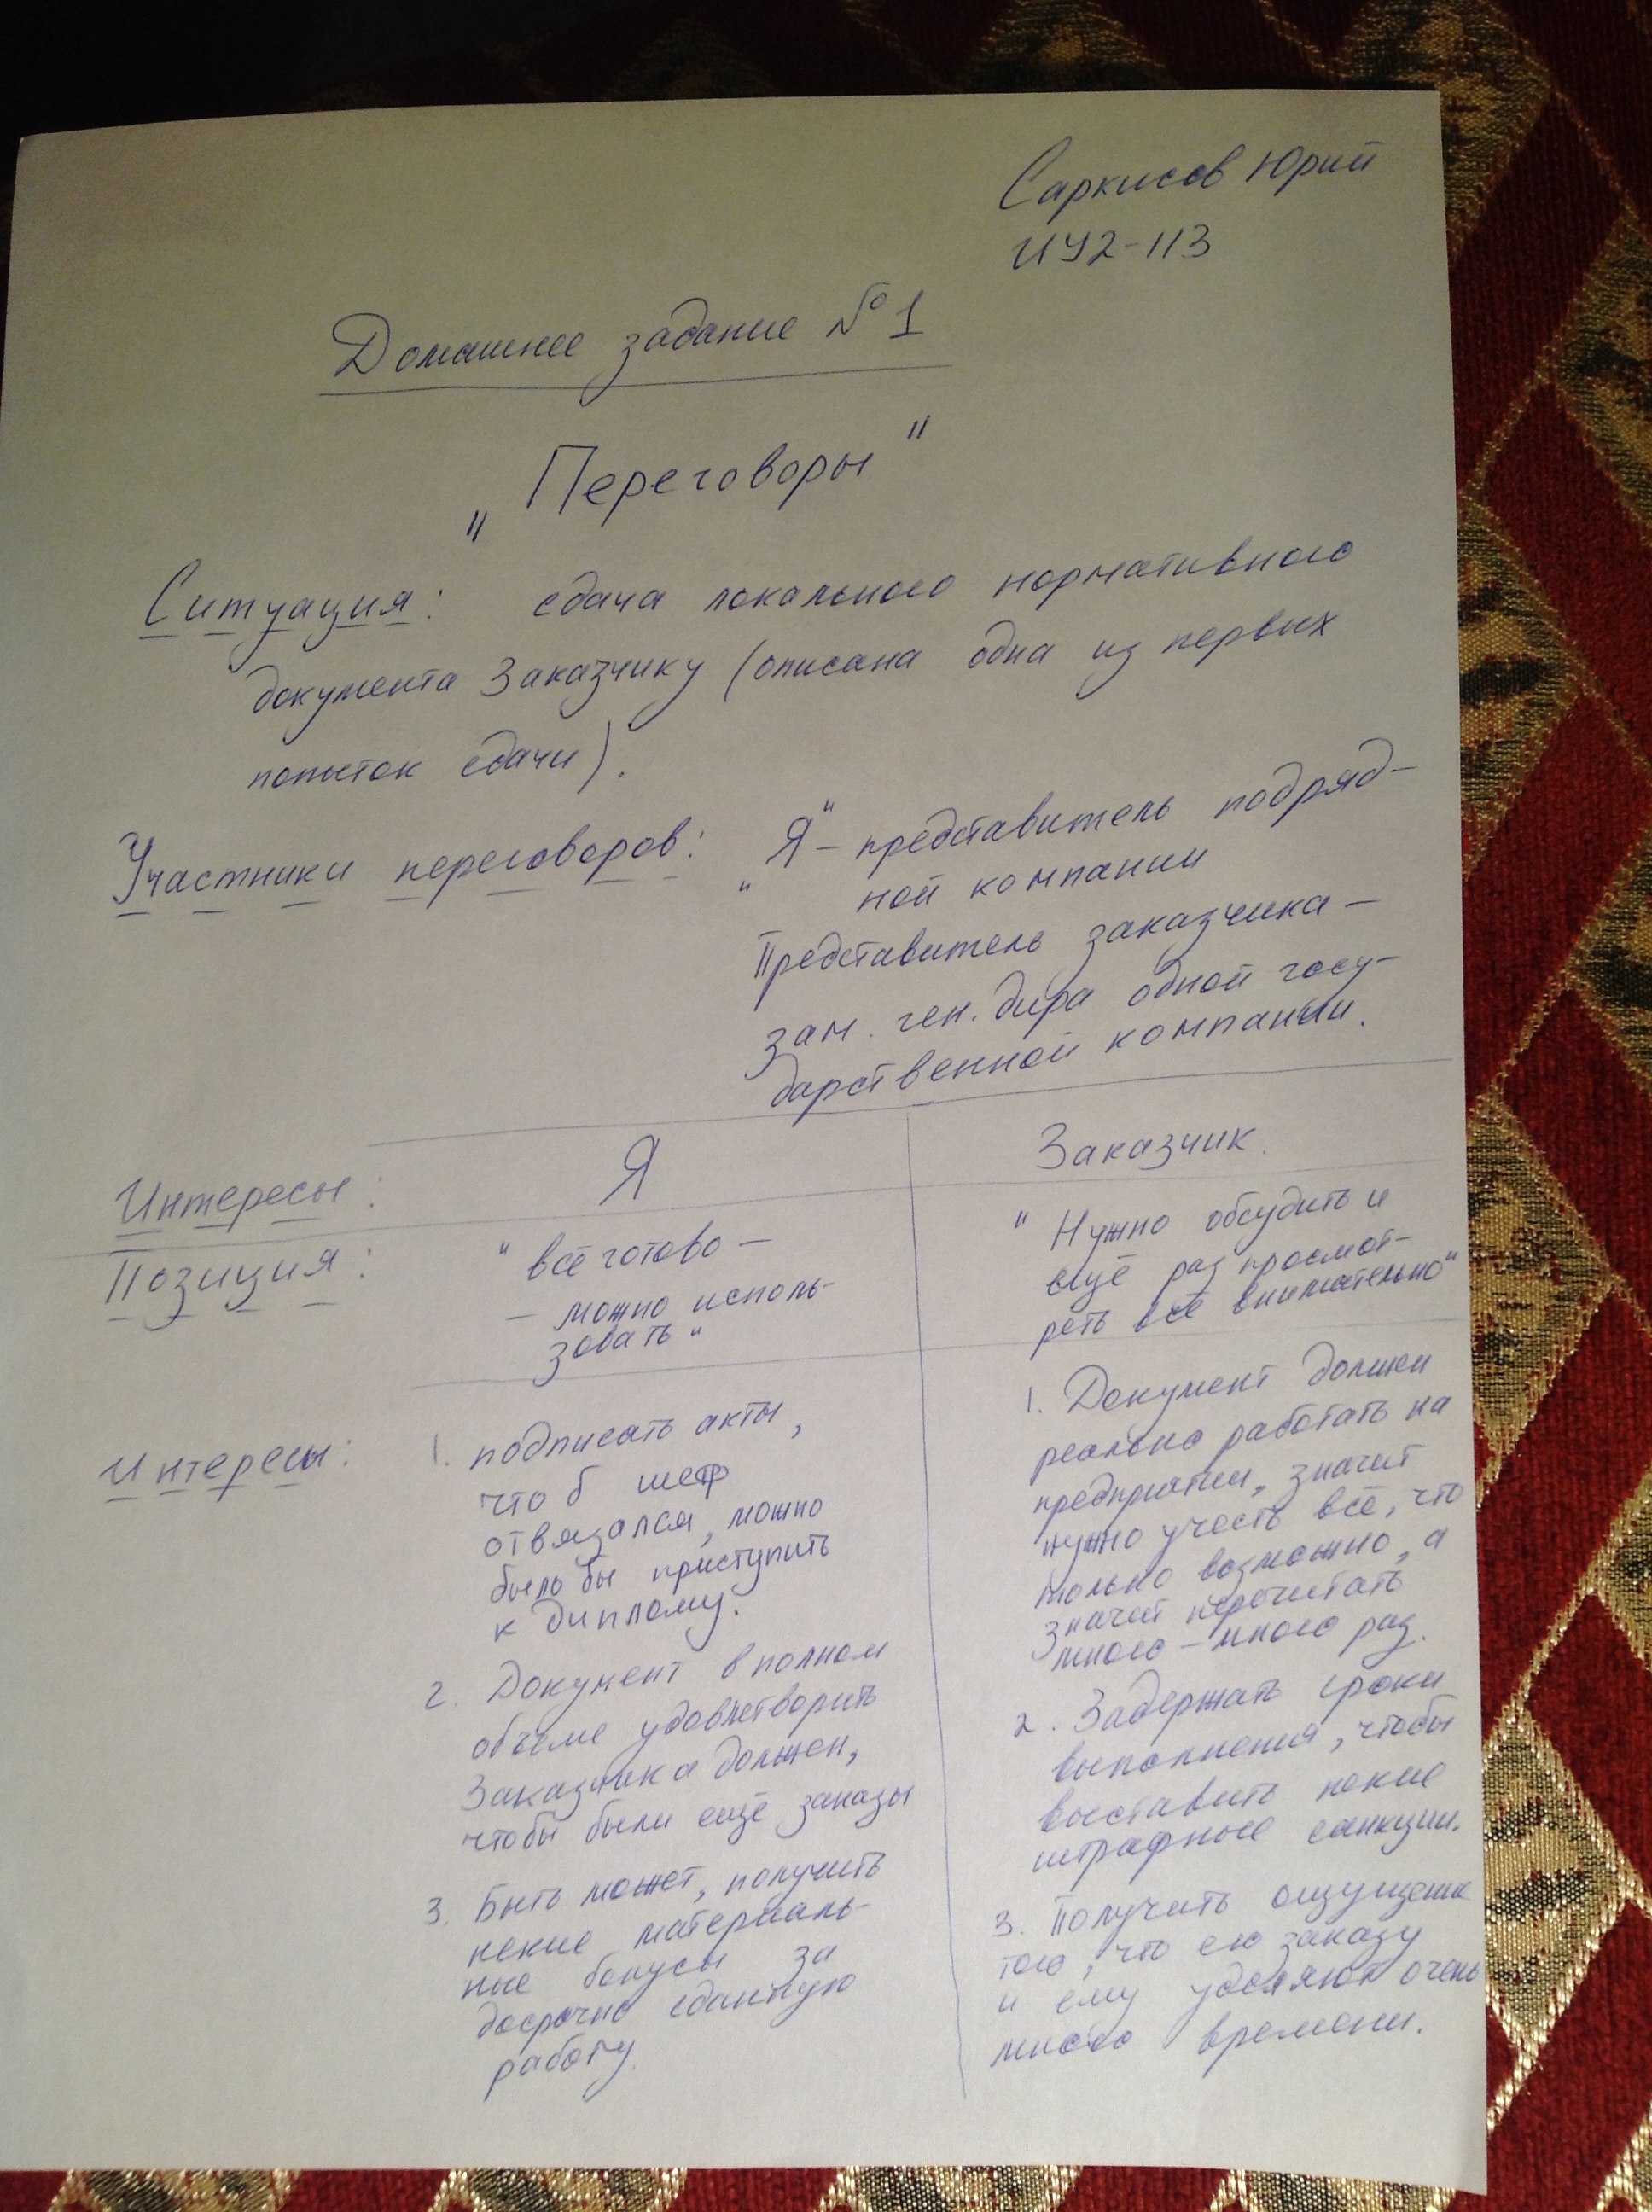 Саркисов Юрий
ИУ2-113
Домашнее задание №1
"Переговоры"
Ситуация: сдача локального нормативного
документа Заказчику (описана одна из первых
попыток сдачи).
Участники переговоров: "Я" - представитель подряд-
ной компании
Представитель заказчика -
зам. ген. дира одной госу-
дарственной компании.
Интересы: Я Заказчик.
Позиция:
"всё готово -
- можно исполь-
зовать"
"Нужно обсудить и
ещё раз просмот-
реть всё внимательно"
Интересы:
1. подписать акты,
что б шеф
отвязался, можно
было бы приступить
к диплому.
2. Документ в полном
объеме удовлетворить
Заказчика должен,
чтобы были ещё заказы
3. Быть может, получить
некие материаль-
ные бонусы за
досрочно сданную
работу.
1. Документ должен
реально работать на
предприятии, значит
нужно учесть всё, что
только возможно, а
значит перечитать
много-много раз.
2. Задержать сроки
выполнения, чтобы
выставить некие
штрафные санкции.
3. Получить ощущение
того, что его заказу
и ему уделяют очень
много времени.